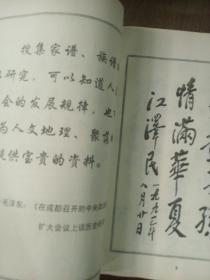 搜集家谱、族谱
研究，可以知道人
会的发展规律，也
为人文地理、聚落
提供宝贵的资料。
毛泽东：《在成都召开的中央政治
扩大会议上谈历史
情满華夏
江泽民
一九九二年
八月廿日